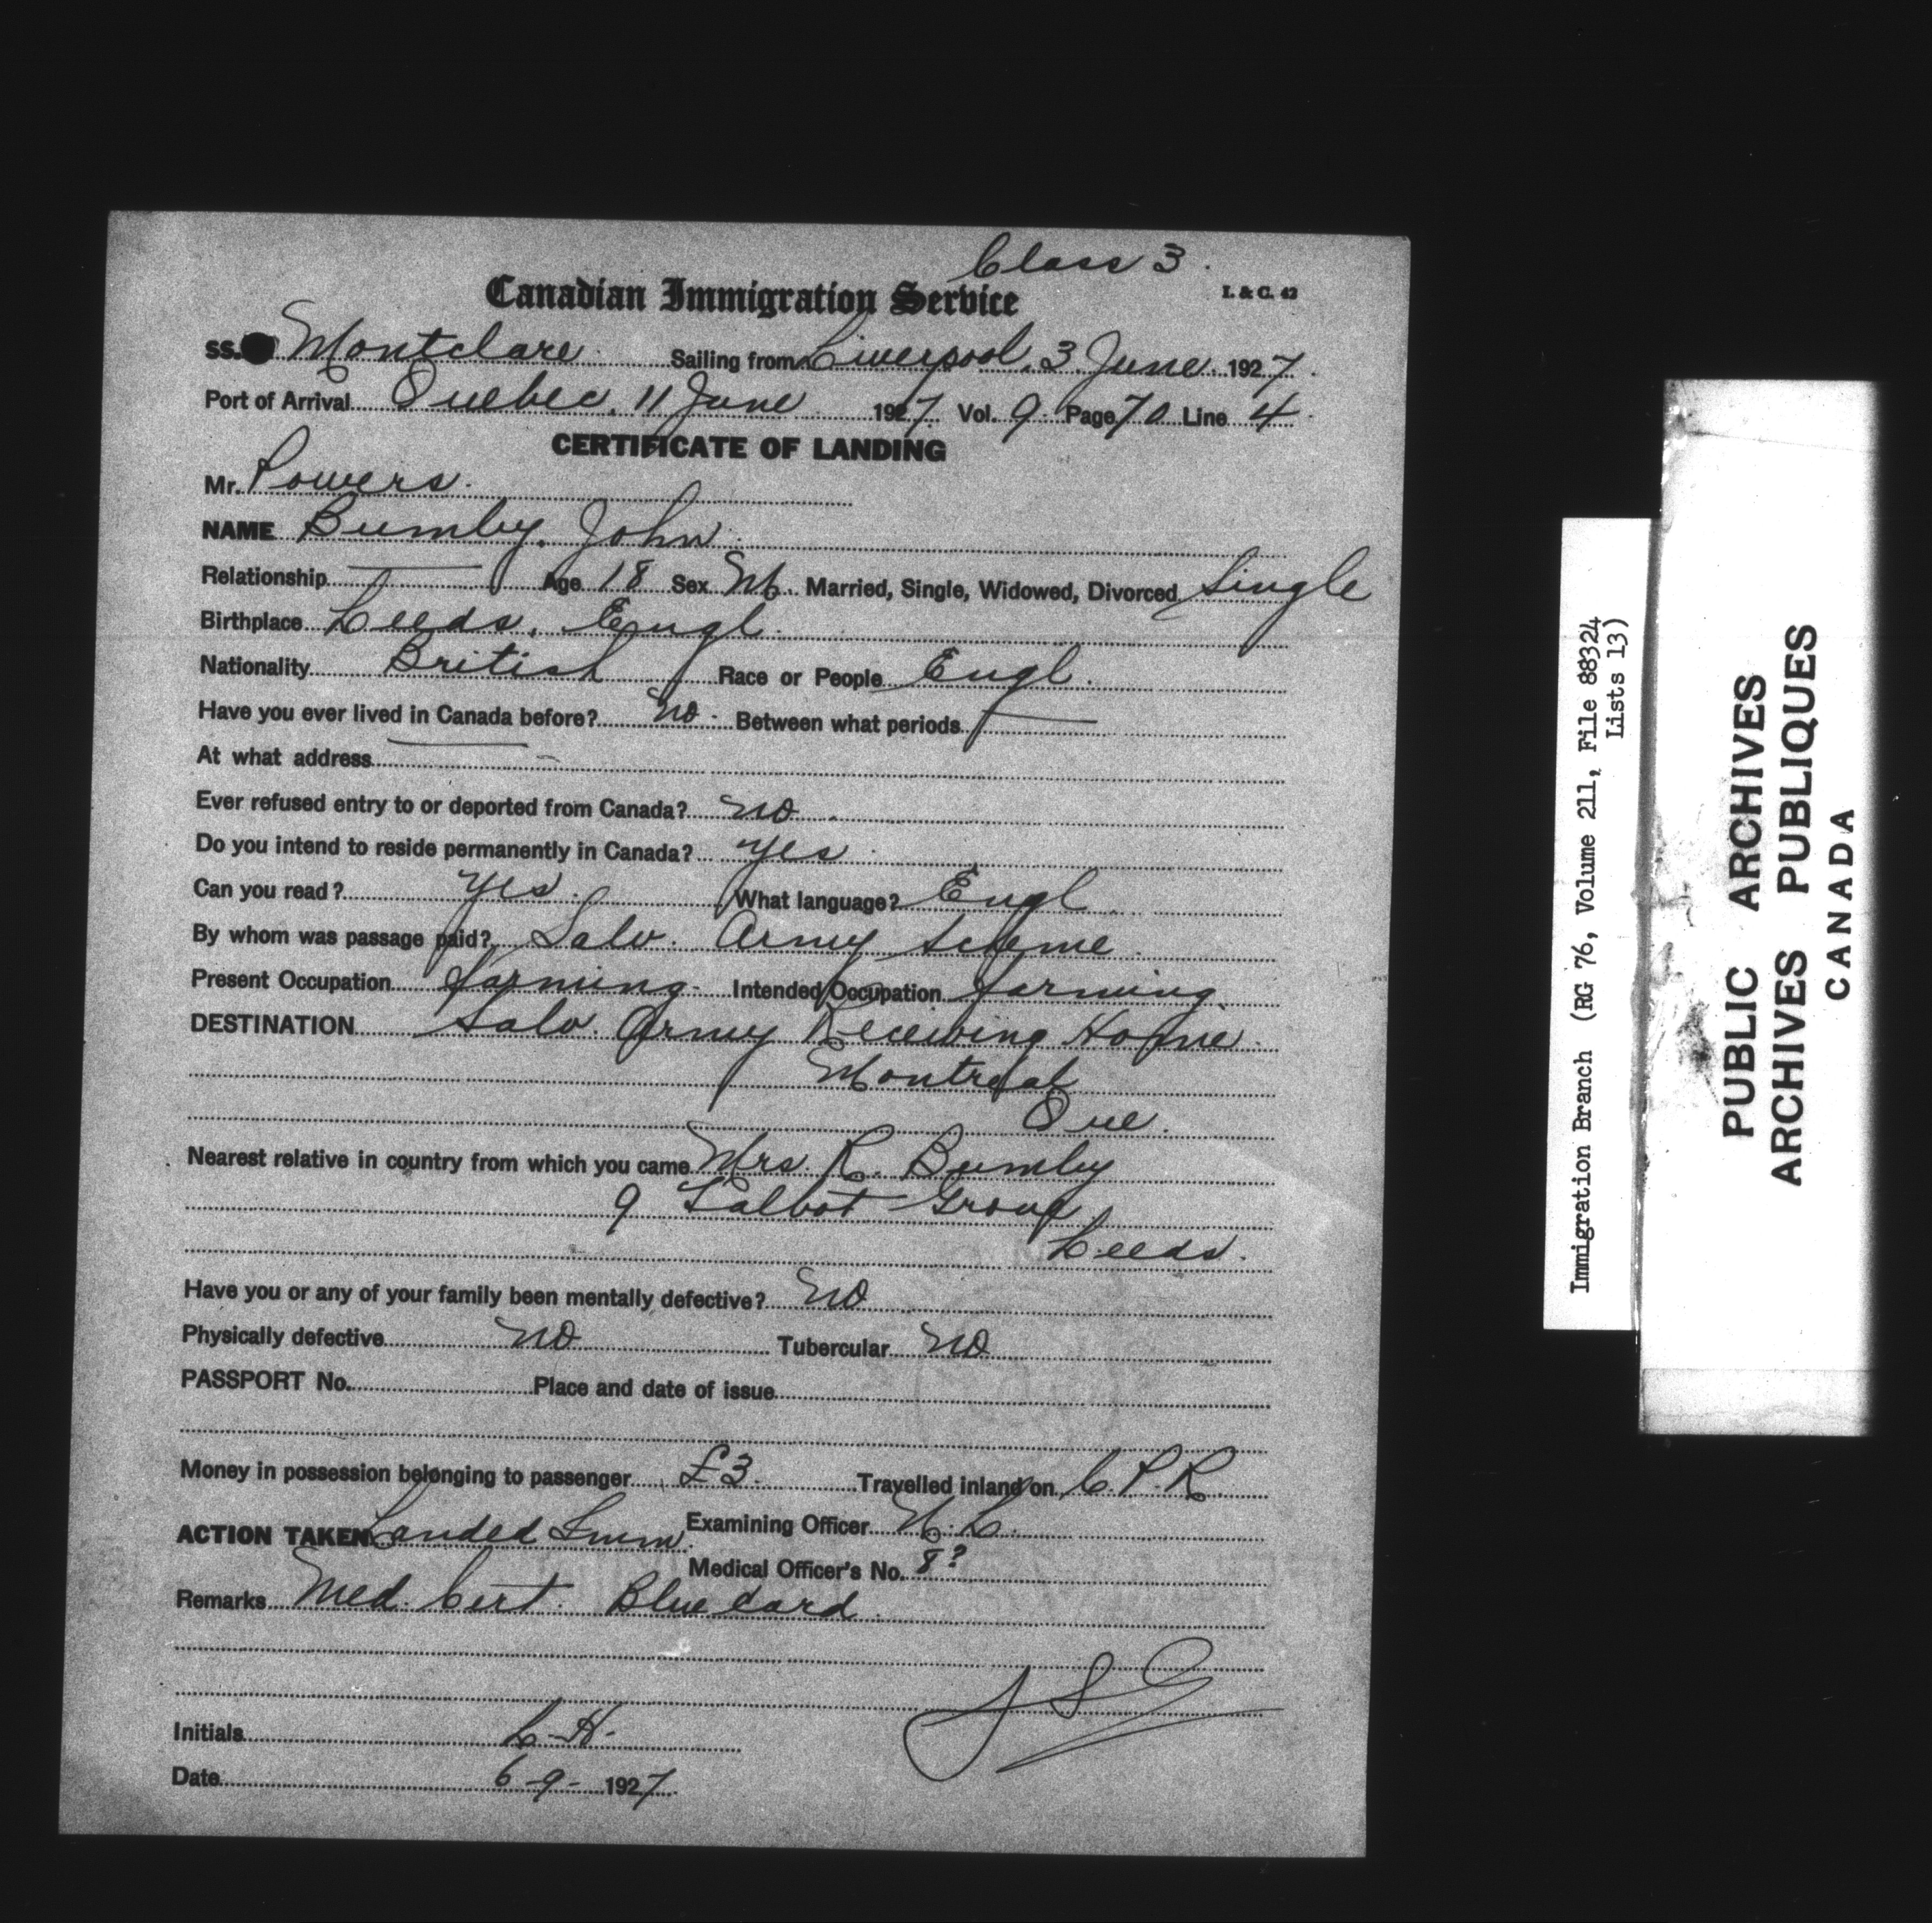 Class 3.
Canadian Immigration Service
I. & C. 42
SS. Montclare Sailing from Liverpool, 3 June 1927.
Port of Arrival Quebec, 11 June 1927. Vol. 9. Page 70 Line 4.
CERTIFICATE OF LANDING
Mr. Powers.
NAME Bumby, John.
Relationship — Age 18 Sex M. Married, Single, Widowed, Divorced Single
Birthplace Leeds, Engl.
Nationality British Race or People Engl.
Have you ever lived in Canada before? no. Between what periods —
At what address —
Ever refused entry to or deported from Canada? no.
Do you intend to reside permanently in Canada? yes.
Can you read? yes. What language? Engl
By whom was passage paid? Salv. Army Scheme.
Present Occupation farming. Intended Occupation farming.
DESTINATION Salv. Army Receiving Home.
Montreal
Que.
Nearest relative in country from which you came Mrs. R. Bumby
9 Talbot Grove
Leeds.
Have you or any of your family been mentally defective? no
Physically defective no Tubercular no
PASSPORT No. Place and date of issue
Money in possession belonging to passenger £3. Travelled inland on C.P.R.
ACTION TAKEN Landed Imm. Examining Officer
Medical Officer's No. 8?
Remarks Med. Cert. Blue card.
Initials
Date 6-9-1927
Immigration Branch (RG 76, Volume 211, File 88324
Lists 13)
PUBLIC ARCHIVES
ARCHIVES PUBLIQUES
CANADA